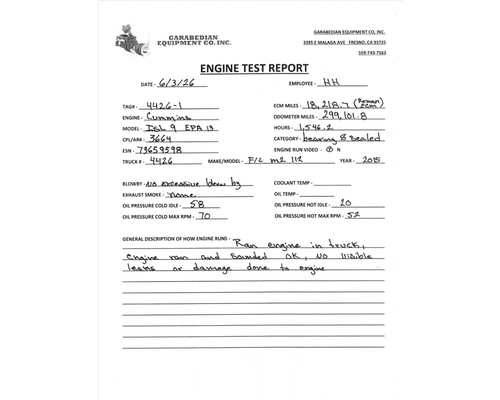 GARABEDIAN
EQUIPMENT CO. INC.
GARABEDIAN EQUIPMENT CO, INC.
3395 E MALAGA AVE FRESNO, CA 93725
559-743-7563
ENGINE TEST REPORT
DATE - 6/3/26 EMPLOYEE - HH
TAG# - 4426-1 ECM MILES - 18,218.7 (Reman ECM)
ENGINE - Cummins ODOMETER MILES - 299,101.8
MODEL - ISL 9 EPA 13 HOURS - 1,546.2
CPL/AR# - 3664 CATEGORY - bearing & Sealed
ESN - 73659598 ENGINE RUN VIDEO - Y N
TRUCK # - 4426 MAKE/MODEL - F/L m2 112 YEAR - 2015
BLOWBY - no excessive blow by COOLANT TEMP -
EXHAUST SMOKE - none OIL TEMP -
OIL PRESSURE COLD IDLE - 58 OIL PRESSURE HOT IDLE - 20
OIL PRESSURE COLD MAX RPM - 70 OIL PRESSURE HOT MAX RPM - 52
GENERAL DESCRIPTION OF HOW ENGINE RUNS - Ran engine in truck,
Engine ran and Sounded OK, NO Visible
leaks or damage done to engine